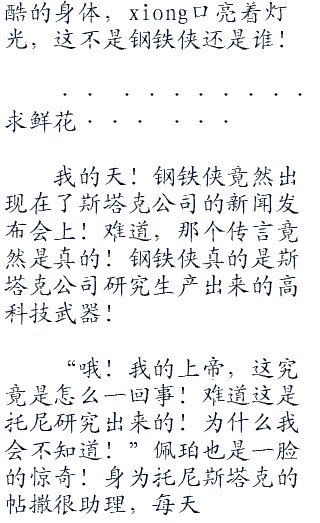 酷的身体，xiong口亮着灯
光，这不是钢铁侠还是谁！
·· ········
求鲜花··· ···
我的天！钢铁侠竟然出
现在了斯塔克公司的新闻发
布会上！难道，那个传言竟
然是真的！钢铁侠真的是斯
塔克公司研究生产出来的高
科技武器！
“哦！我的上帝，这究
竟是怎么一回事！难道这是
托尼研究出来的！为什么我
会不知道！”佩珀也是一脸
的惊奇！身为托尼斯塔克的
帖撒很助理，每天